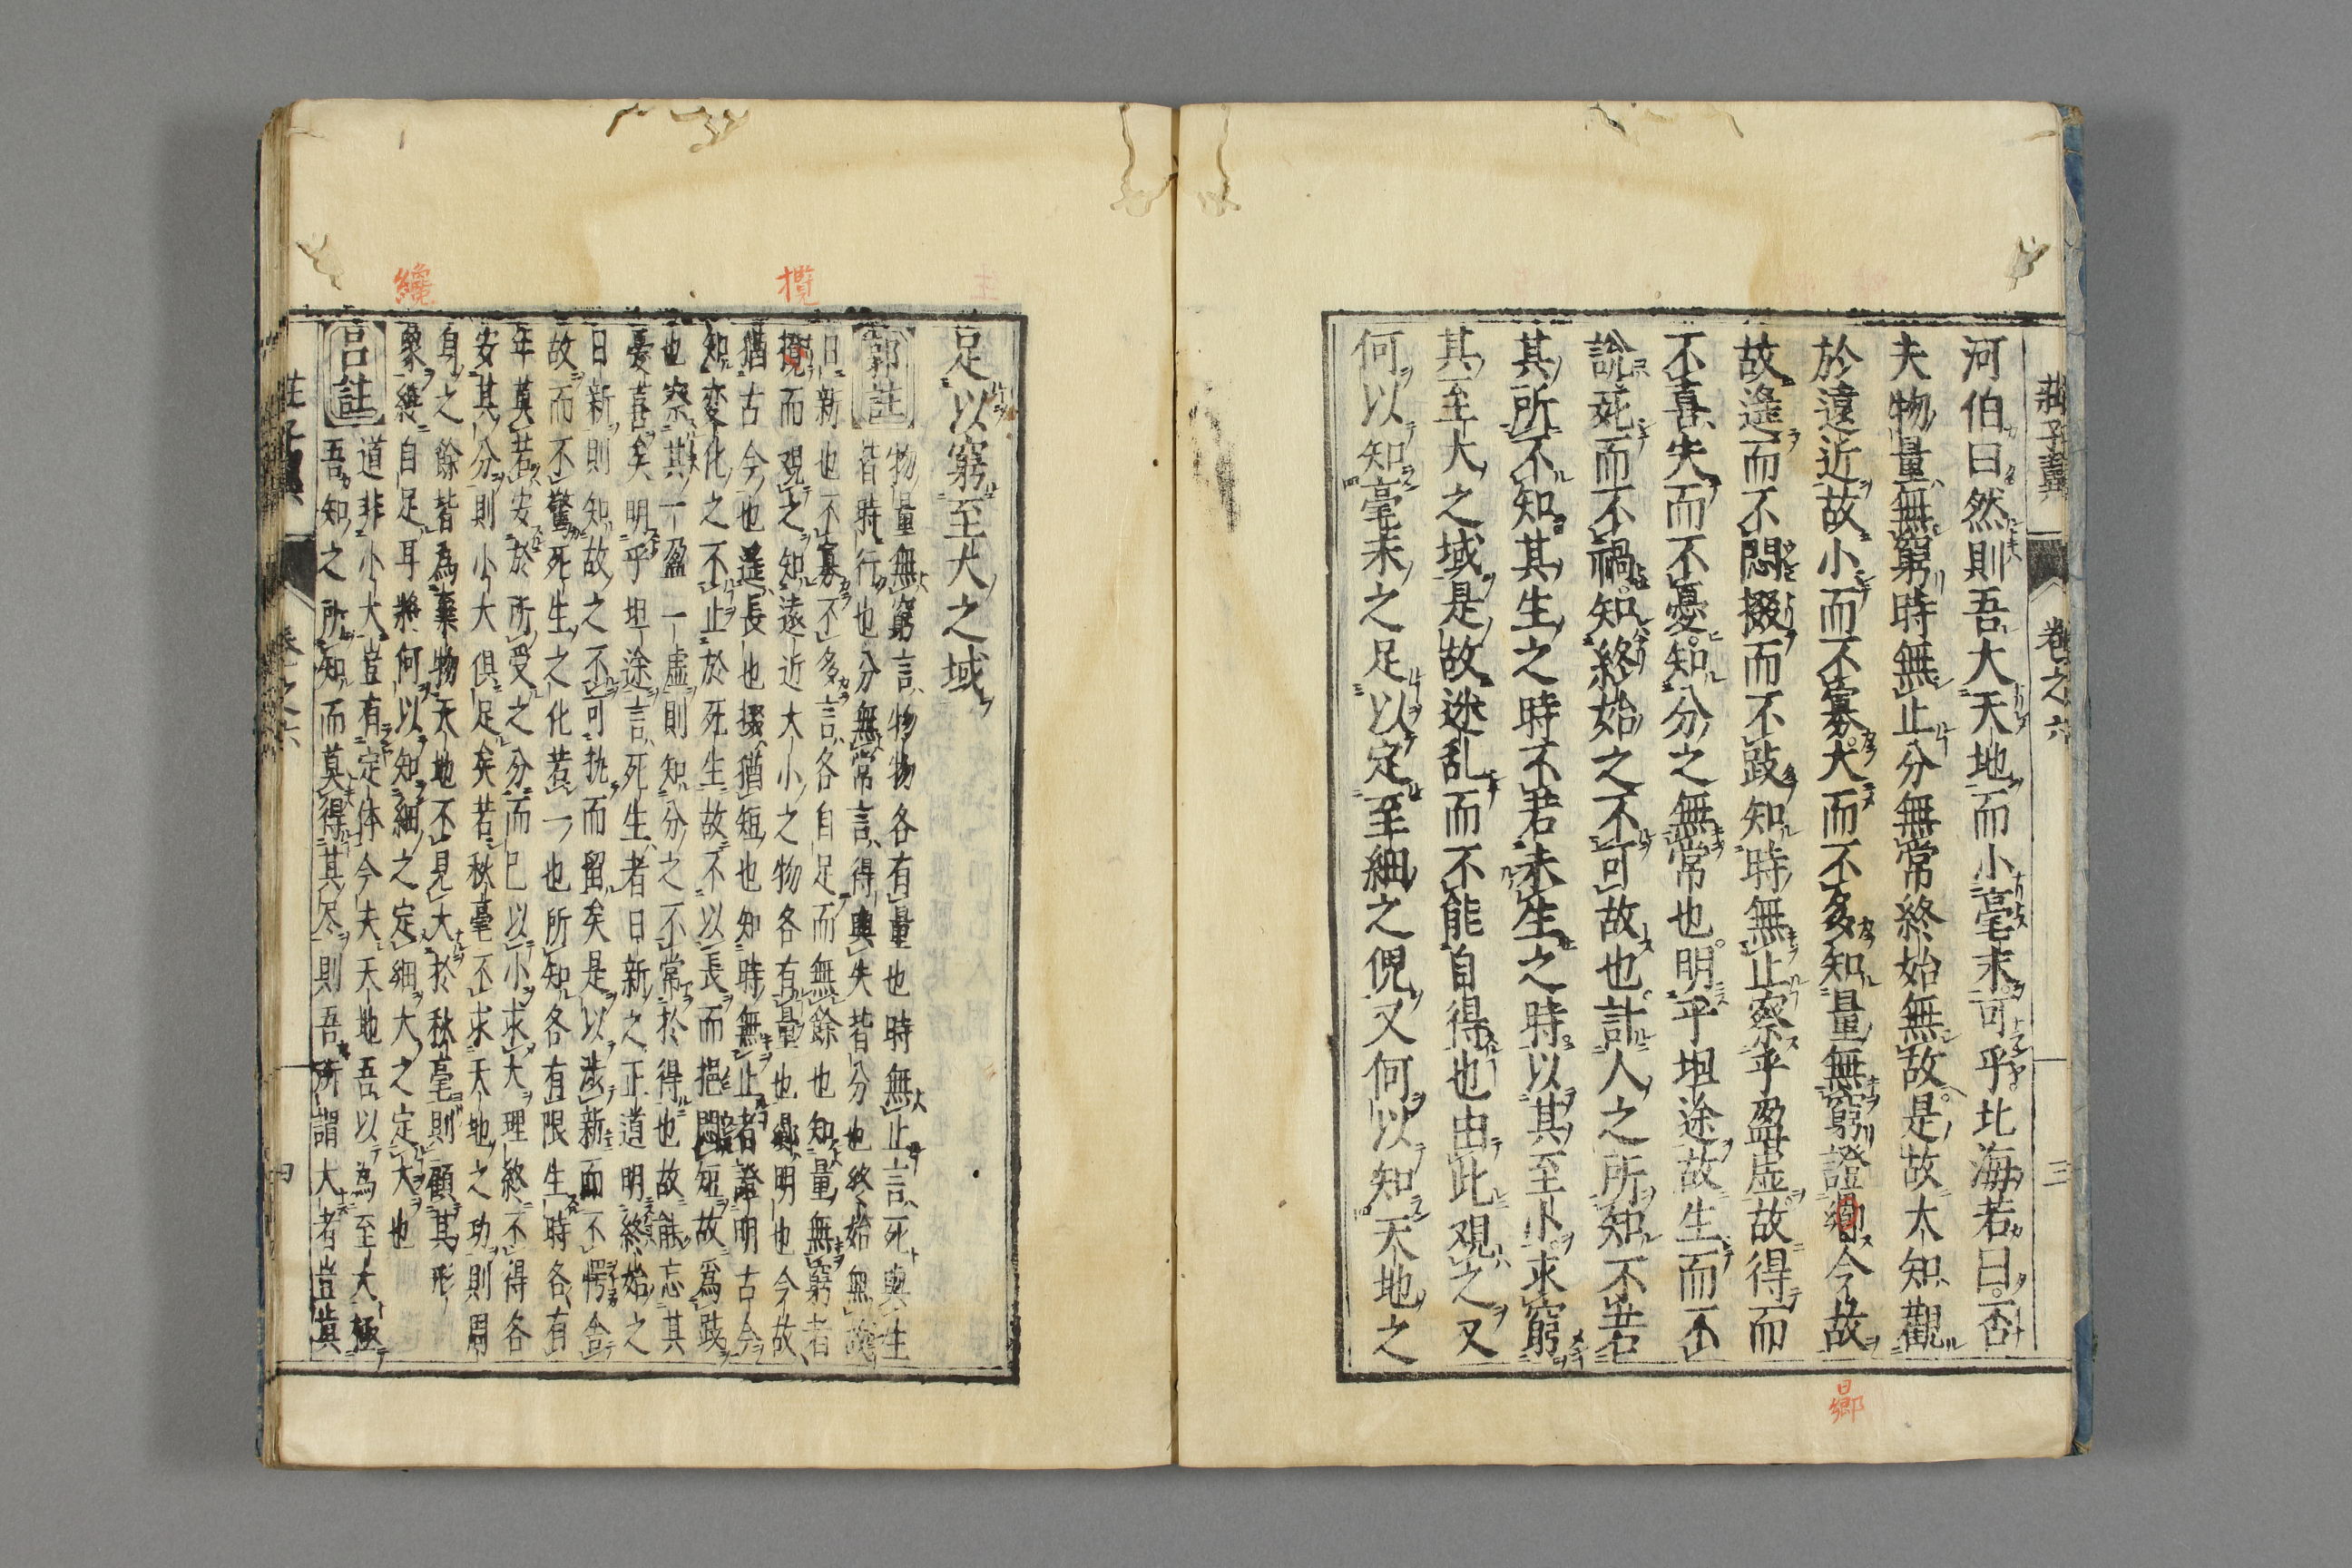 莊子翼 卷之六 三
河伯曰然則吾大天地而小毫末可乎北海若曰否
夫物量無窮時無止分無常終始無故是故大知觀
於遠近故小而不寡大而不多知量無窮證曏今故
故遥而不悶掇而不跂知時無止察乎盈虛故得而
不喜失而不憂知分之無常也明乎坦途故生而不
說死而不禍知終始之不可故也計人之所知不若
其所不知其生之時不若未生之時以其至小求窮
其至大之域是故迷乱而不能自得也由此觀之又
何以知毫末之足以定至細之倪又何以知天地之
曏
足以窮至大之域
郭註
物量無窮言物物各有量也時無止言死與生
皆時行也分無常言得與失皆分也終始無故
日新也不寡不多言各自足而無餘也知量無窮者
攬而觀之知遠近大小之物各有量也曏明也今故
猶古今也遥長也掇猶短也知時無止者證明古今
知変化之不止於死生故不以長而挹悶短故為跂
也察其一盈一虛則知分之不常於得也故能忘其
憂喜矣明乎坦途言死生者日新之正道明終始之
日新則知故之不可執而留矣是以涉新而不愕舍
故而不驚死生之化若一也所知各有限生時各有
年莫若安於所受之分而已以小求大理終不得各
安其分則小大俱足矣若秋毫不求天地之功則周
身之餘皆為棄物天地不見大於秋毫則顧其形
象纔自足耳將何以知細之定細大之定大也
呂註
道非小大豈有定体今夫天地吾以為至大極
吾知之所知而莫得其尽則吾所謂大者豈真
攬
纔
卷之六 四